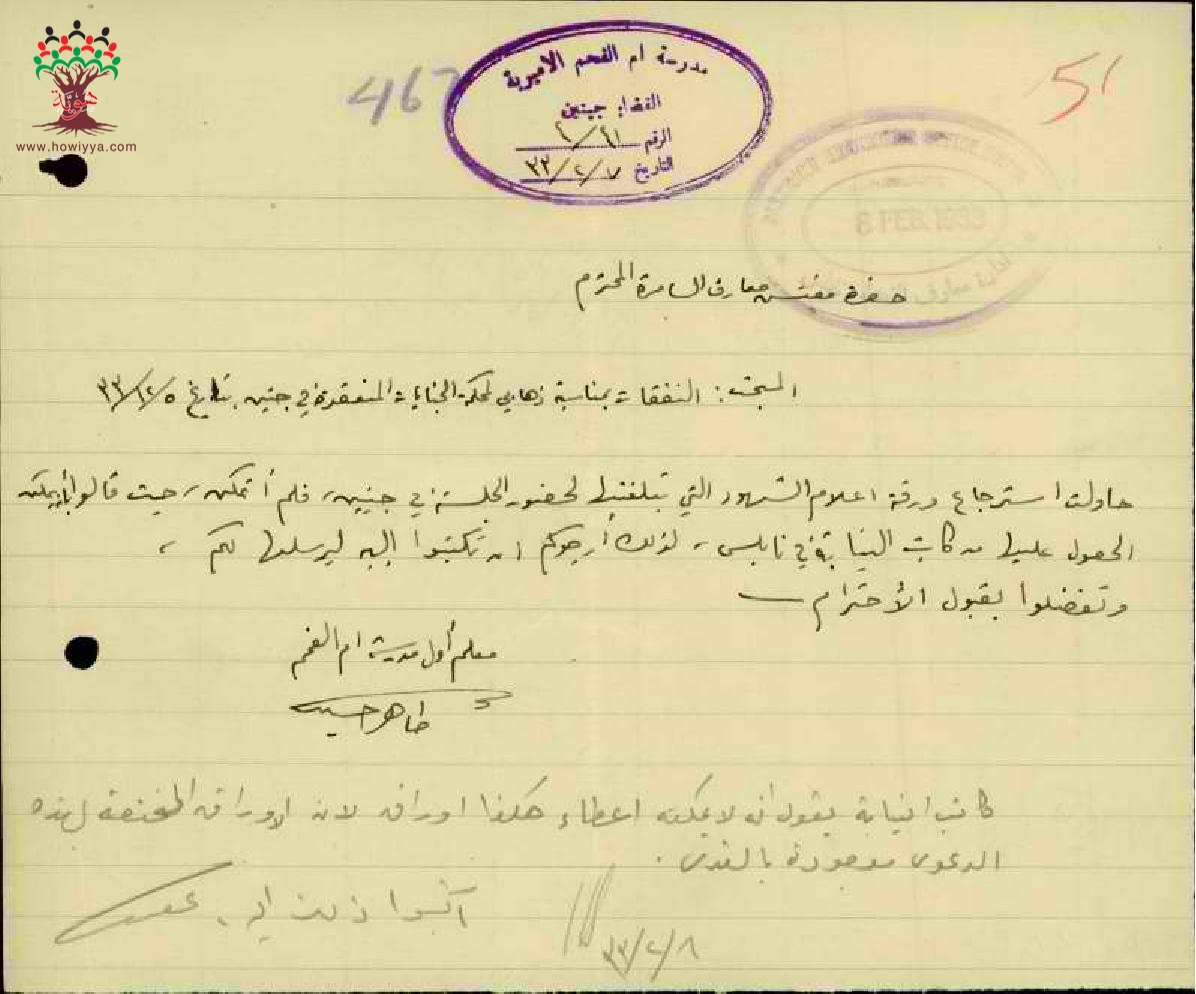 هوية
www.howiyya.com
467
51
مدرسة ام الفحم الاميرية
القضاء جنين
الرقم ٤١/٢
التاريخ ٣٣/٢/٧
8 FEB. 1933
ادارة معارف
حضرة مفتش معارف السامرة المحترم
المبحث: النفقات بمناسبة ذهابي لمحكمة الجنايات المنعقدة في جنين بتاريخ ٣٣/٢/٥
حاولت استرجاع ورقة اعلام الشهود التي تبلغتها لحضور الجلسة في جنين، فلم أتمكن، حيث قالوا
الحصول عليها من كاتب النيابة في نابلس، لذلك أرجوكم ان تكتبوا إليه ليرسلها لكم،
وتفضلوا بقبول الأحترام
معلم أول مدرسة ام الفحم
طاهر حسين
كاتب النيابة يقول انه لا يمكنه اعطاء هكذا اوراق لان الاوراق المختصة بهذه
الدعوى موجودة بالقدس.
اكتبوا ذلك
٣٣/٢/٨